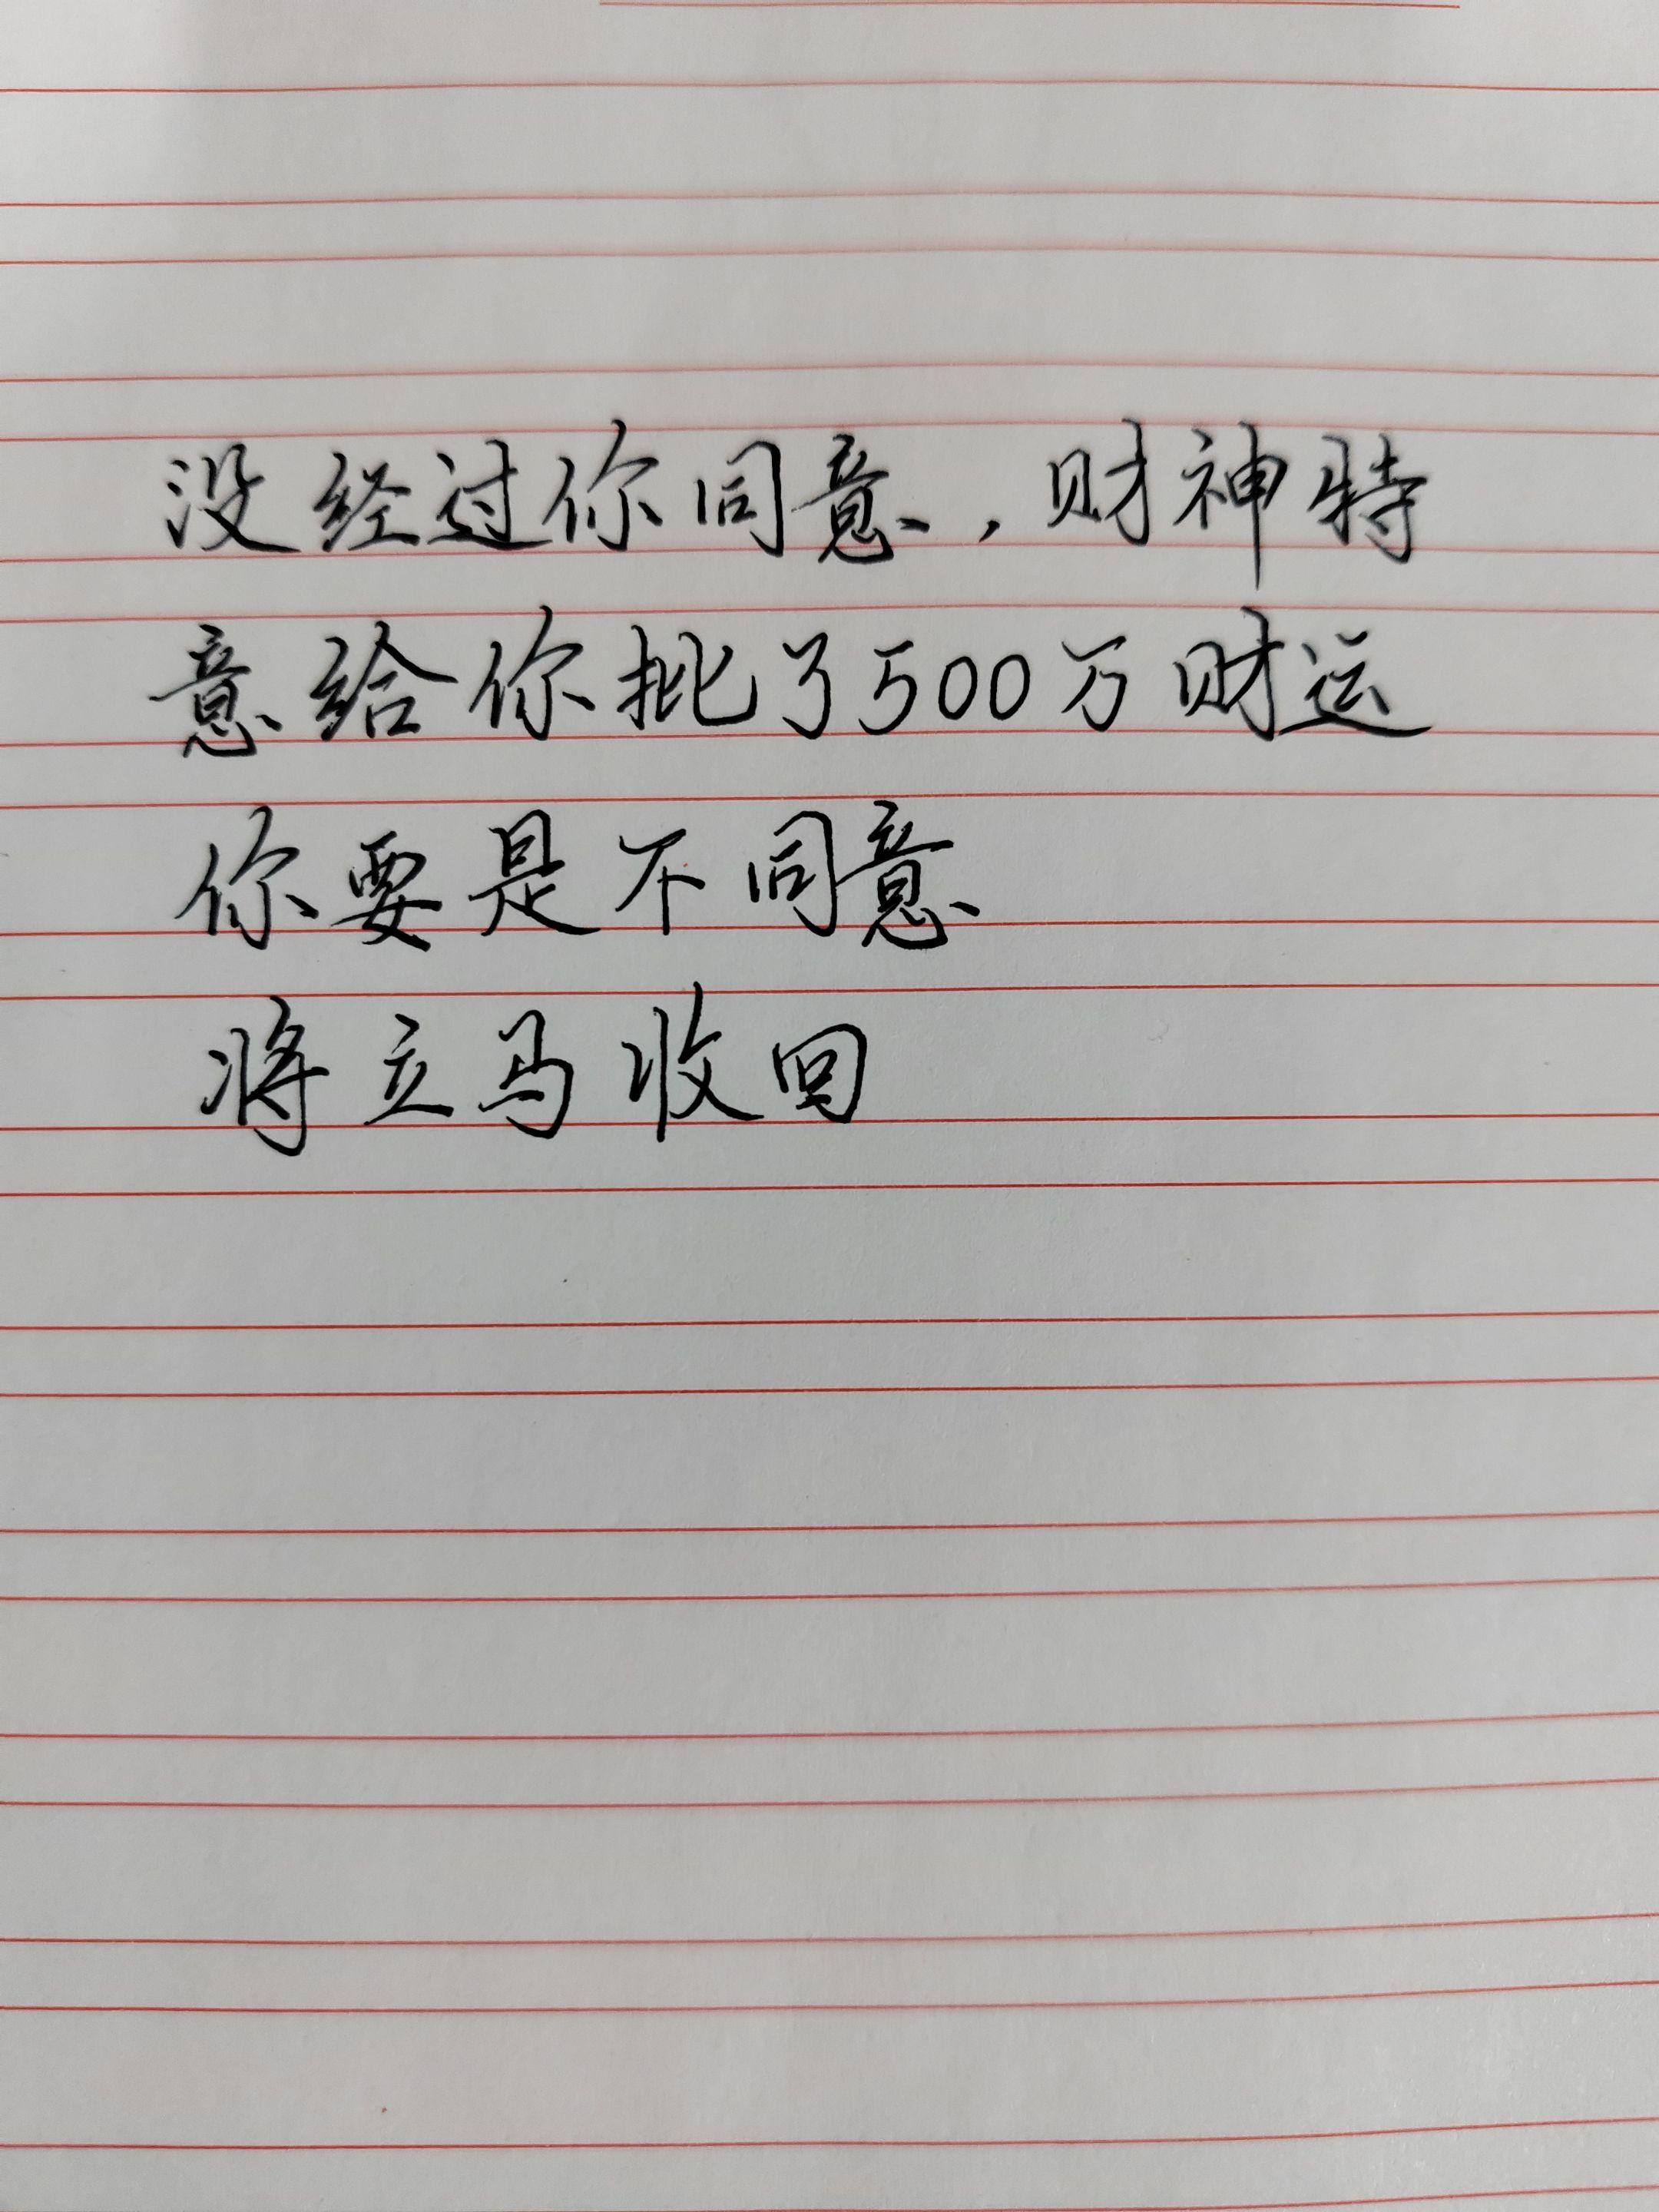 没经过你同意，财神特
意给你批了500万财运
你要是不同意
将立马收回